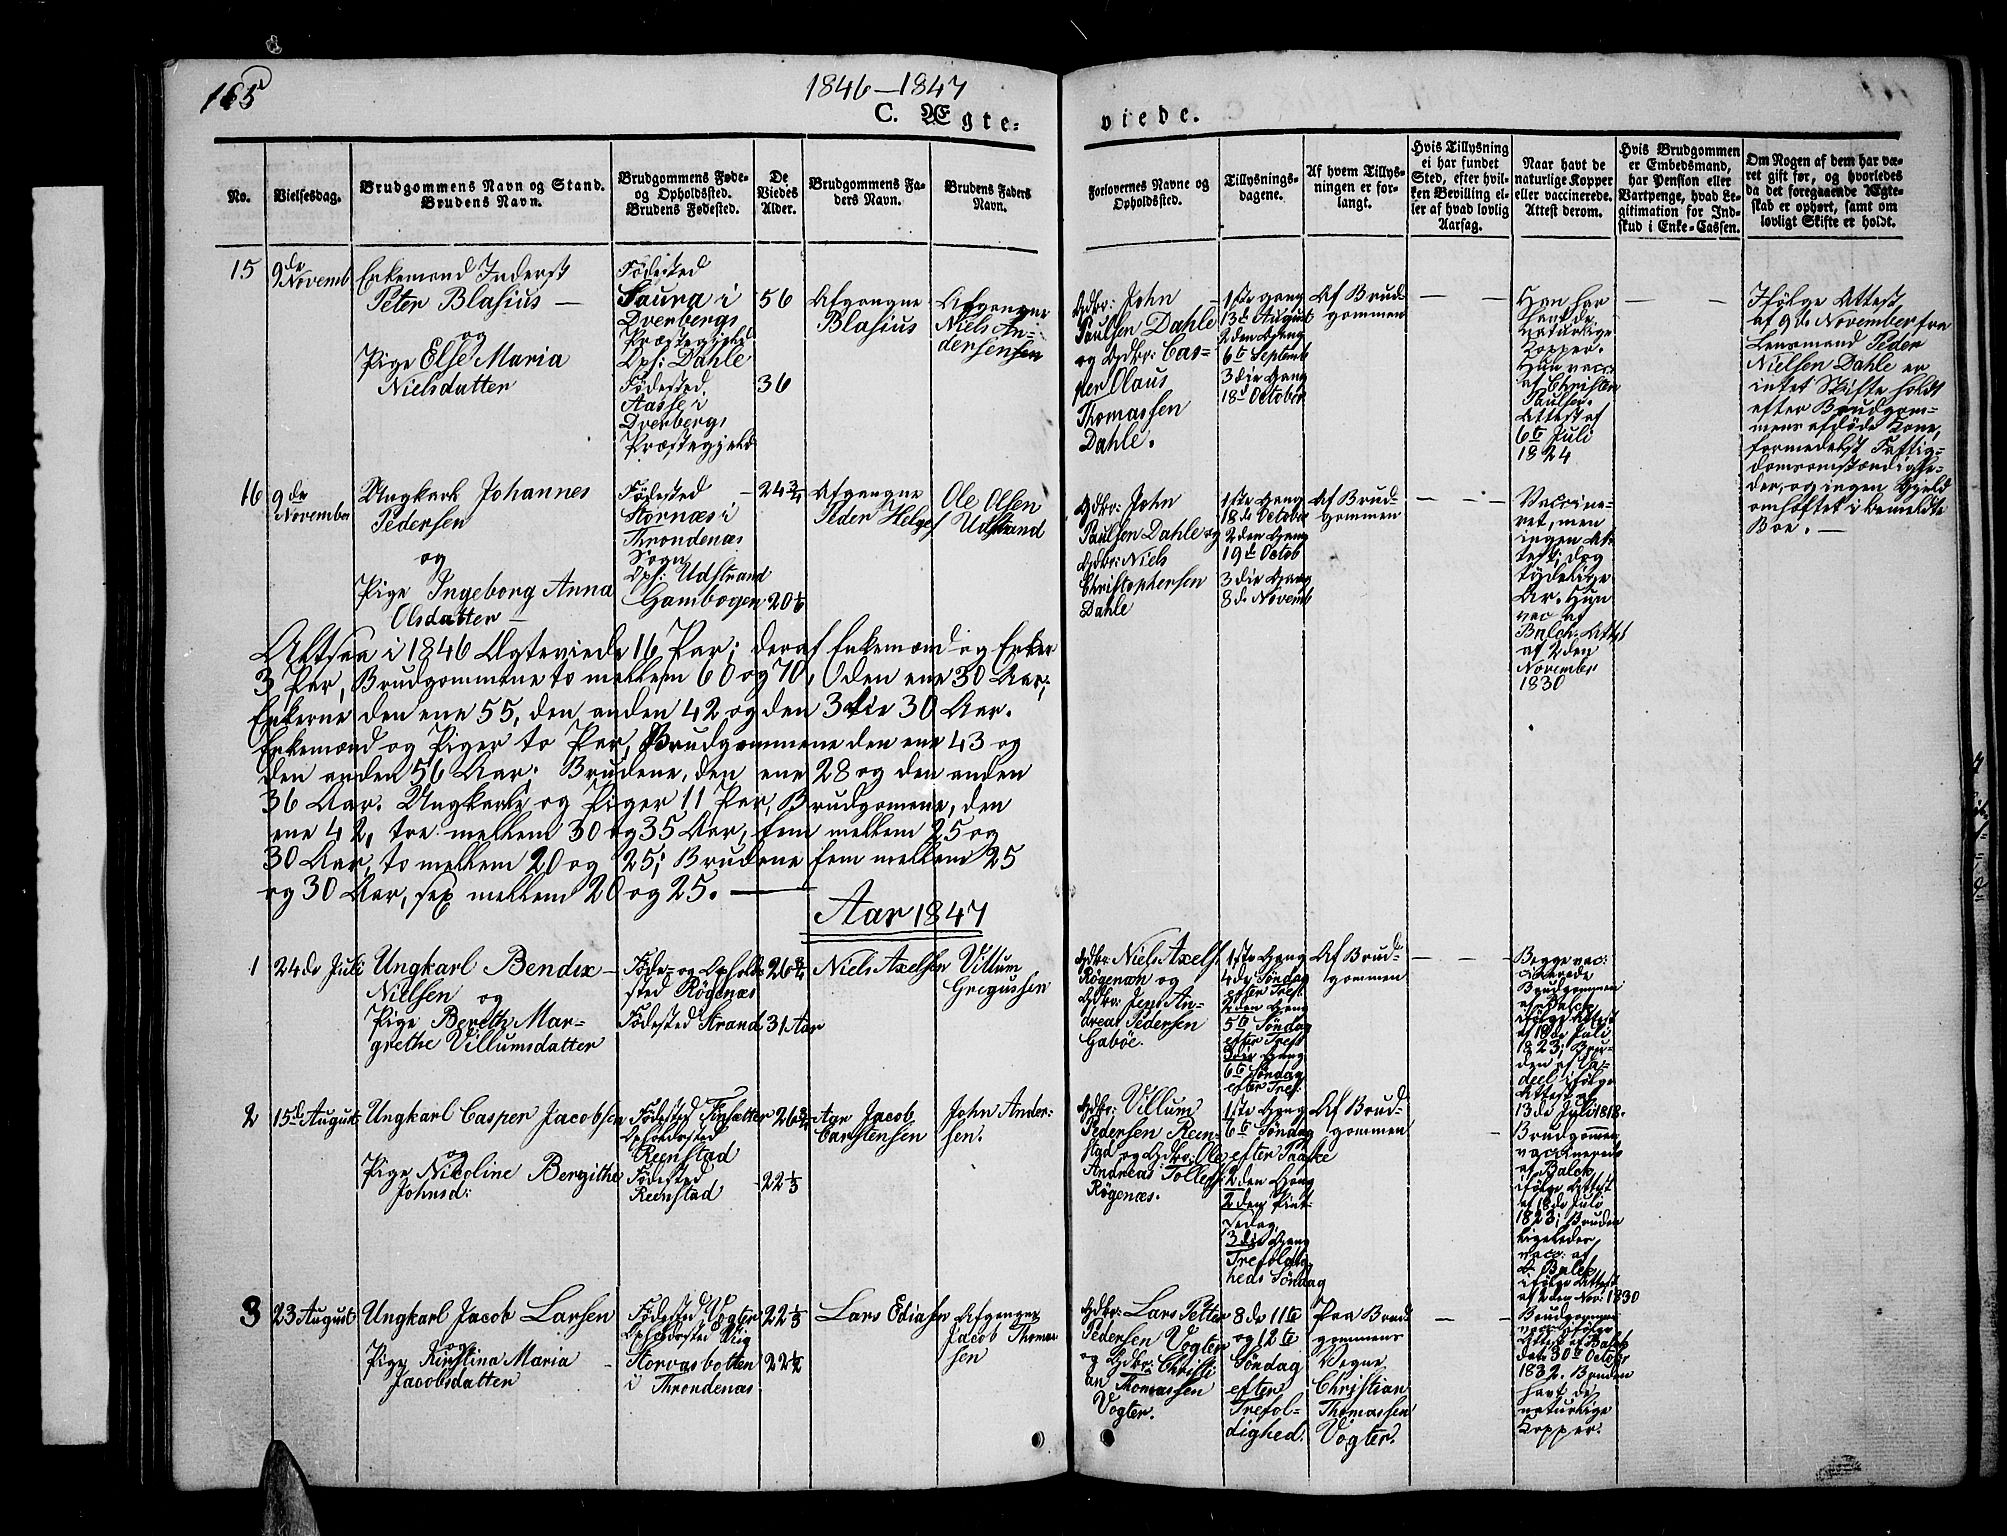 165
1846–1847
C. Ægte-
viede.
No.
Vielsesdag.
Brudgommens Navn og Stand.
Brudens Navn.
Brudgommens Føde-
og Opholdssted.
Brudens Fødested.
De
Viedes
Alder.
Brudgommens Fa-
ders Navn.
Brudens Faders
Navn.
Forlovernes Navne og
Opholdssted.
Tillysnings-
dagene.
Af hvem Tillys-
ningen er for-
langt.
Hvis Tillysning
ei har fundet
Sted, efter hvil-
ken Bevilling el-
ler af hvad lovlig
Aarsag.
Naar havt de
naturlige Kopper
eller vaccinerede.
Attest derom.
Hvis Brudgommen
er Embedsmand,
har Pension eller
Vartpenge, hvad Le-
gitimation for Ind-
skud i Enke-Cassen.
Om Nogen af dem har væ-
ret gift før, og hvorledes
da det foregaaende Ægte-
skab er ophørt, samt om
lovligt Skifte er holdt.
15
9de
Novemb
Enkemand Inderst
Peter Blasius —
og
Pige Else Maria
Nielsdatter
Fødested
Saura i
Dverbergs
Præstegjeld
Ops: Dahle
Fødested
Aasse i
Dverbergs
Præstegjeld
56
36
Afgangne
Blasius
Afgangne
Niels An-
dersensen
Gdbr: John
Paulsen Dahle
og Gdbr: Cas-
per Olaus
Thomassen
Dahle.
1ste Gang
13de August
2den Gang
6te Septemb
3die Gang
18de October
Af Brud-
gommen
Han har
havt de
naturlige
Kopper.
Hun vacc:
af Christen
Paulsen.
Attest af
6te Juli
1824
Ifølge Attest
af 9de November fra
Lensmand Peder
Nielsen Dahle er
intet Skifte holdt
efter Brudgom-
mens afdøde Kone,
formedelst Fattig-
domsomstændighe-
der, og ingen Gjeld
omhæftet i bemeldte
Boe. —
16
9de
November
Ungkarl Johannes
Pedersen
og
Pige Ingeborg Anna
Olsdatter —
Fødested —
Stornæs i
Throndenæs
Sogn
Ops: Udstrand
Gambogen
24 3/4
20 1/6
Afgangne
Peder Helges
Ole Olsen
Udstrand
Gdbr: John
Paulsen Dahle og
Gdbr: Niels
Christophersen
Dahle
1ste Gang
18de October
2den Gang
19de Octob
3die Gang
8de Novemb
Af Brud-
gommen
Vaccine-
ret, men
ingen At-
test; dog
tydelige
Ar. Hun
vac af
Balch. Attest
af 2den
November
1830
Altsaa i 1846 Ægteviede 16 Par; deraf Enkemænd og Enker
3 Par, Brudgommene to mellem 60 og 70, Oden ene 30 Aar;
Enkerne den ene 55, den anden 42 og den 3die 30 Aar.
Enkemænd og Piger to Par, Brudgommene den ene 43 og
den anden 56 Aar; Brudene, den ene 28 og den anden
36 Aar. Ungkarle og Piger 11 Par, Brudgomene, den
ene 42, tre mellem 30 og 35 Aar, fem mellem 25 og
30 Aar, to mellem 20 og 25; Brudene fem mellem 25
og 30 Aar, sex mellem 20 og 25. —
Aar 1847
1
24de Juli
Ungkarl Bendix —
Nielsen og
Pige Bereth Mar-
grethe Villumsdatter
Føde- og Ophold-
sted Røgenæs
Fødested Strand
26 3/4
31 Aar
Niels Axelsen
Villum
Gregussen
Gdbr: Niels Axels:
Røgenæn og
Gdbr: Jens An-
dreas Pedersen
Gaböe.
1ste Gang
4de Søndag
efter Tref.
2den Gang
5te Søndag
efter Tref
3die Gang
6te Søndag
efter Tref.
Af Brud-
gommen
Begge vac-
cinerede
Brudgommen
af Balch
ifølge Attest
af 18de Juli
1823; Bru-
den af
ifølge
Attest af
13de Juli 1818.
2
15de August
Ungkarl Casper Jacobsen
og
Pige Nicoline Bergithe
Johnsd:
Fødested Finsætter
Opholdssted
Reenstad
Fødested
Reenstad
26 3/4 Aar
22 1/3
Jacob
Carstensen
John Ander-
sen.
Gdbr: Villum
Pedersen Reen-
stad og Gdbr: Ole
Andreas Tollefs:
Røgenæs.
1ste Gang
6te Søndag
efter Paaske
2den Gang
2den Pint-
sedag,
3die Gang
Trefoldig-
heds Søndag
Af Brud-
gommen
Brudgommen
vaccinered
af Balch
ifølge Attest
af 18de Juli
1823; Bruden
ligeledes
vacc: af
Balch,
ifølge Attest
af 2den Nov: 1830
3
23 August
Ungkarl Jacob Larsen
og
Pige Kirstina Maria
Jacobsdatter
Fødested Vogter
Opholdssted Viig
Storvasbotten
i Throndenæs
22 1/3
22 1/2
Lars Ediasen
Afgangne
Jacob Thomas
sen
Gdbr: Lars Petter
Pedersen Vogter
og Gdbr: Christi
an Thomassen
Vogter.
8de 11te
og 12te
Søndag
efter
Trefol-
dighed.
Paa Brud
gommens
Vegne
Christian
Thomassen
Vogter.
Brudgommen
vacc: ifølge
Attest af Balch
dat: 30te October
1832. Bruden
havt de
naturlige
Kopper.